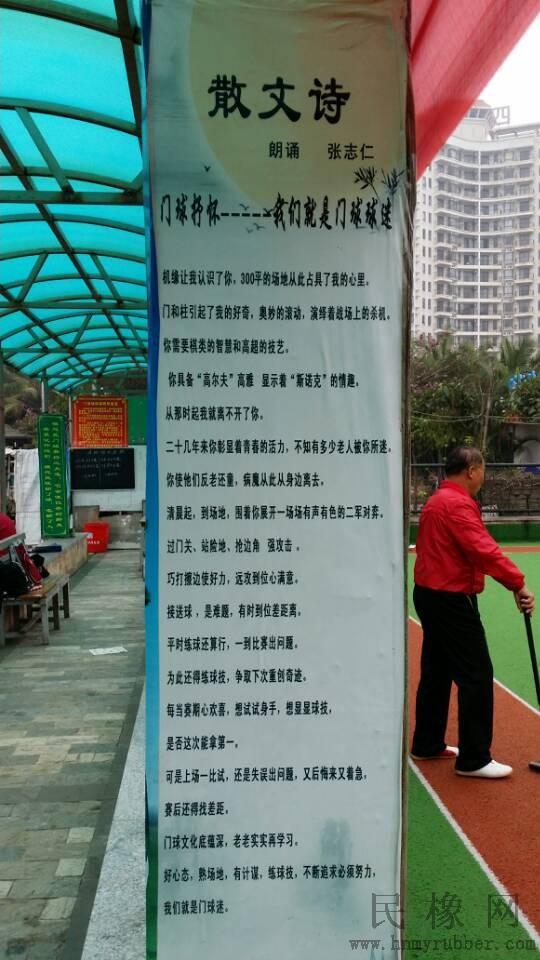 散文诗
朗诵 张志仁
门球抒怀-----我们就是门球球迷
机缘让我认识了你，300平的场地从此占具了我的心里。
门和柱引起了我的好奇，奥妙的滚动，演绎着战场上的杀机。
你需要棋类的智慧和高超的技艺。
你具备“高尔夫”高雅 显示着“斯诺克”的情趣。
从那时起我就离不开了你。
二十几年来你彰显着青春的活力，不知有多少老人被你所迷。
你使他们反老还童，病魔从此从身边离去。
清晨起，到场地，围着你展开一场场有声有色的二军对弈。
过门关、站险地、抢边角 强攻击 。
巧打擦边使好力，远攻到位心满意。
接送球 ，是难题，有时到位差距离。
平时练球还算行，一到比赛出问题。
为此还得练球技，争取下次重创奇迹。
每当赛期心欢喜，想试试身手，想显显球技，
是否这次能拿第一。
可是上场一比试，还是失误出问题，又后悔来又着急，
赛后还得找差距。
门球文化底蕴深，老老实实再学习。
好心态，熟场地，有计谋，练球技，不断追求必须努力，
我们就是门球迷。
四
民橡网
www.hnmyrubber.com